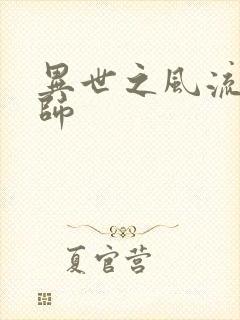 異世之風流
師
夏官营